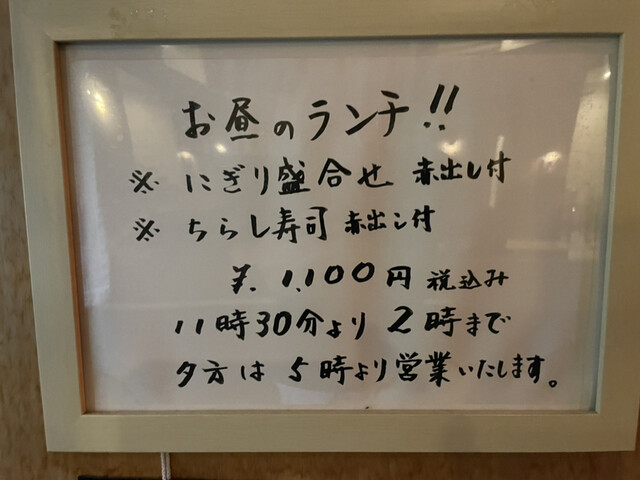 お昼のランチ!!
※ にぎり盛合せ 赤出し付
※ ちらし寿司 赤出し付
¥. 1,100円 税込み
11時30分より 2時まで
夕方は 5時より営業いたします。